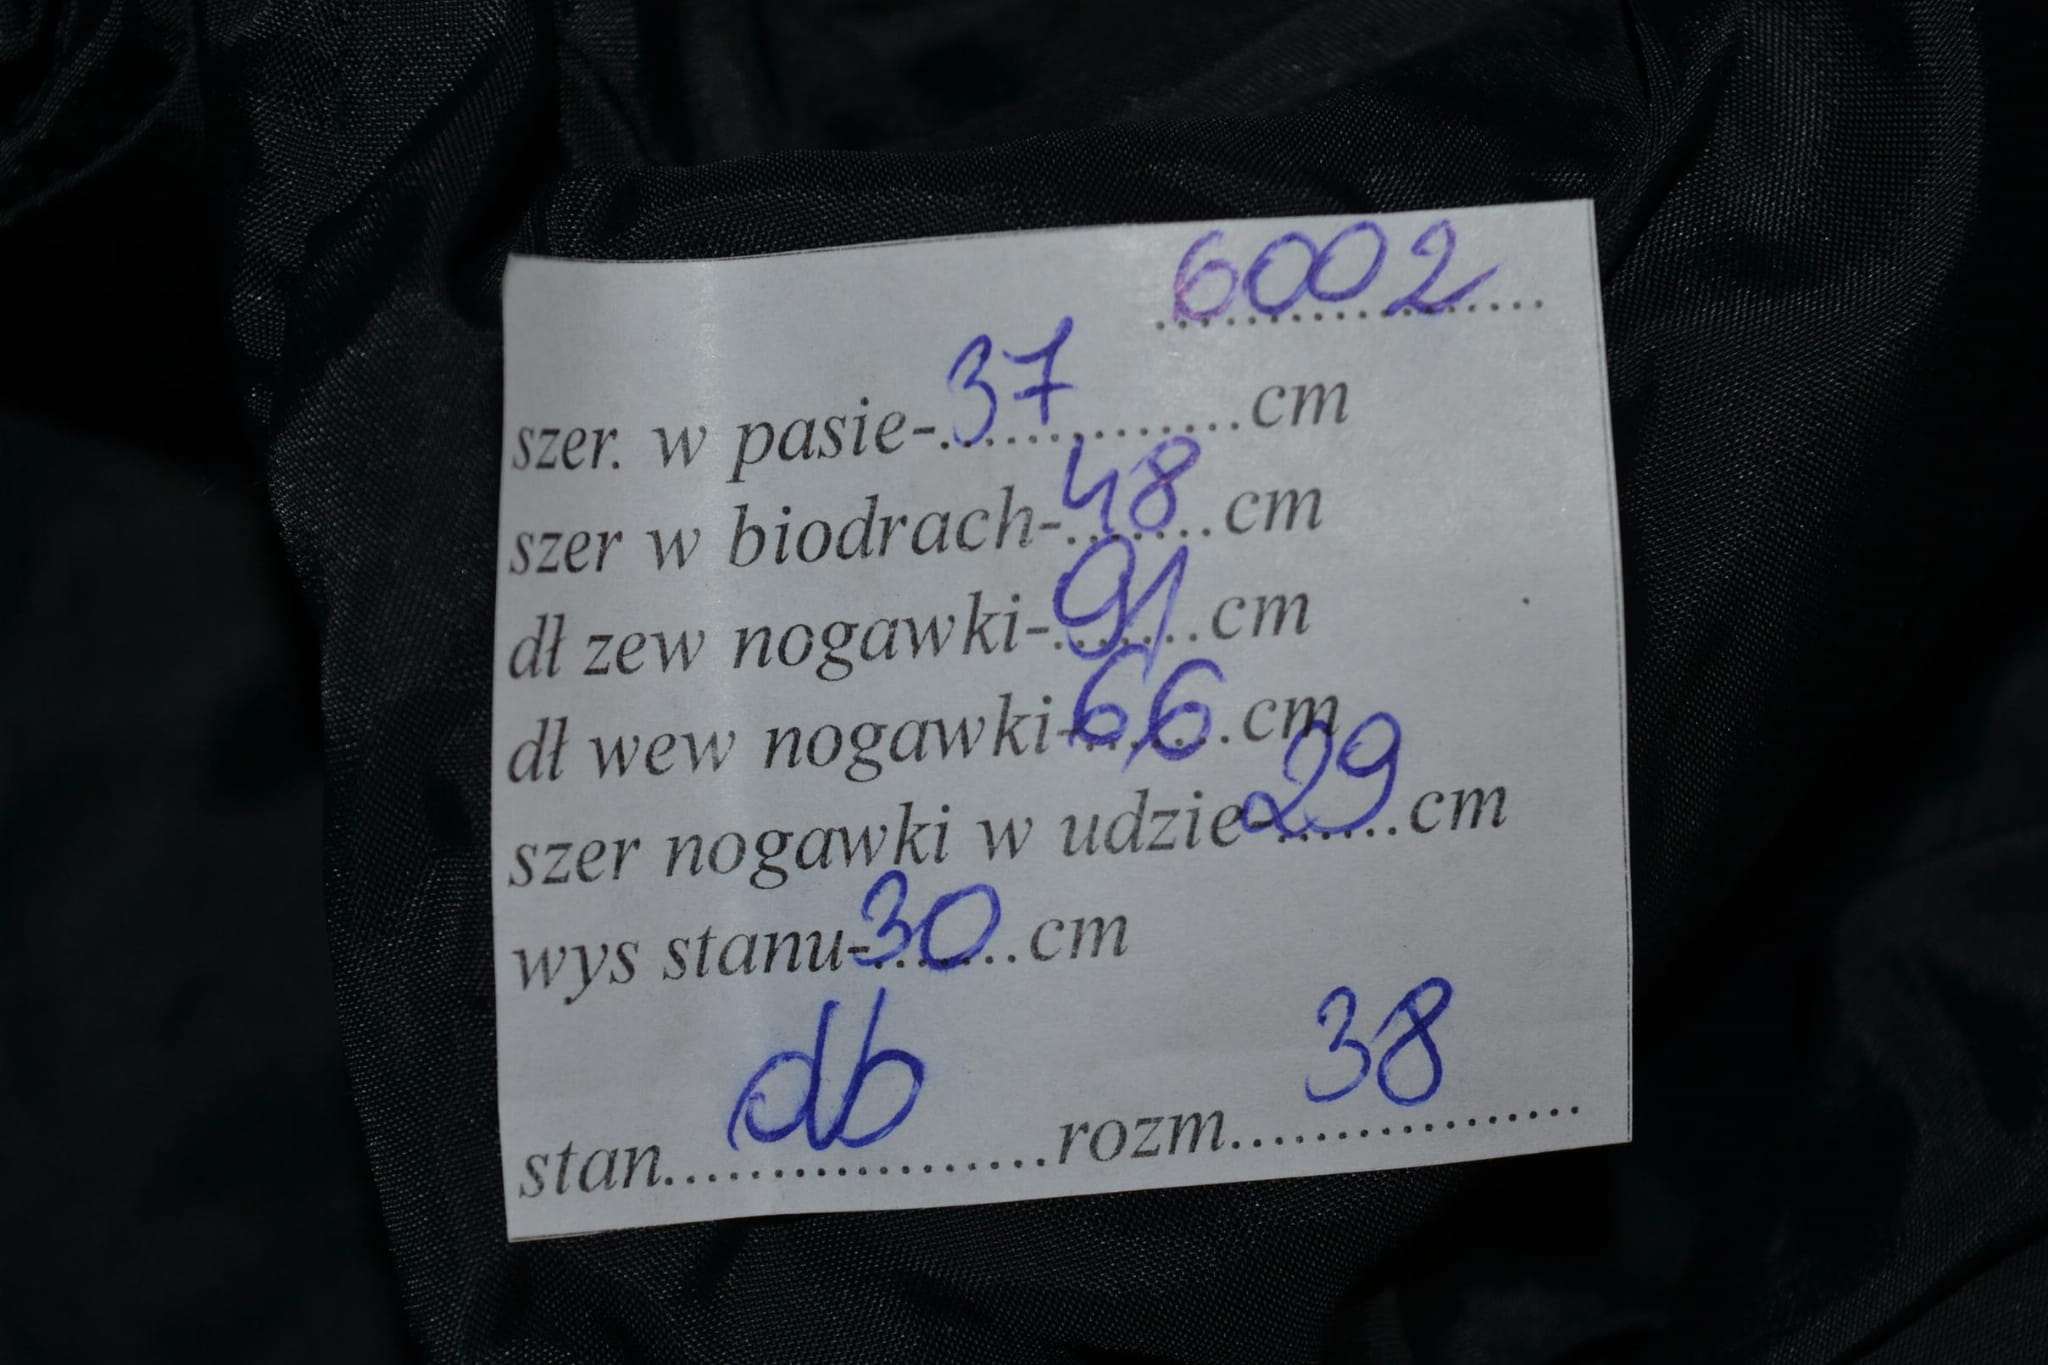 6002
szer. w pasie-37cm
szer w biodrach-48cm
dł zew nogawki-91cm
dł wew nogawki-66cm
szer nogawki w udzie-29cm
wys stanu-30cm
stan db rozm 38